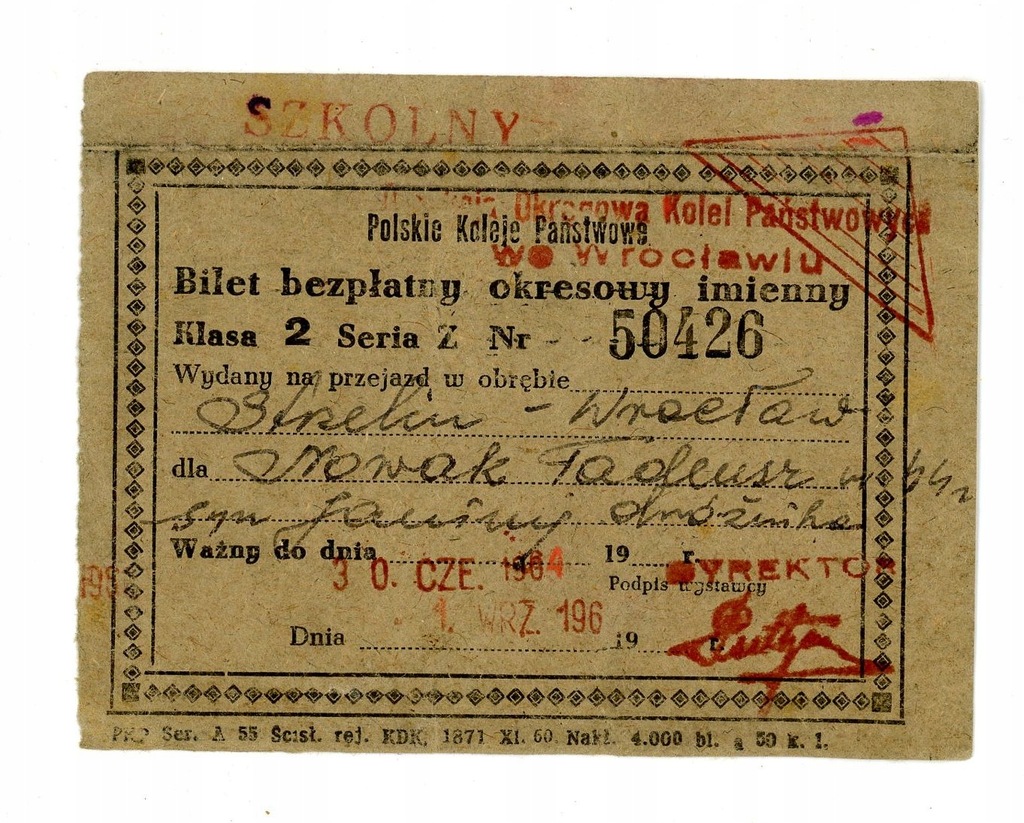 SZKOLNY
Okręgowa Kolei Państwowych
we Wrocławiu
Polskie Koleje Państwowe
Bilet bezpłatny okresowy imienny
Klasa 2 Seria Z Nr 50426
Wydany na przejazd w obrębie
Strzelin - Wrocław
dla Nowak Tadeusz
syn Janiny dróżnika
Ważny do dnia 30. CZE. 1964 19 r.
DYREKTOR
Podpis wystawcy
1. WRZ. 196
Dnia 19 r.
PKP Ser. A 55 Ścisł. rej. KDK. 1871 XI. 60. Nakł. 4.000 bl. a 50 k. 1.